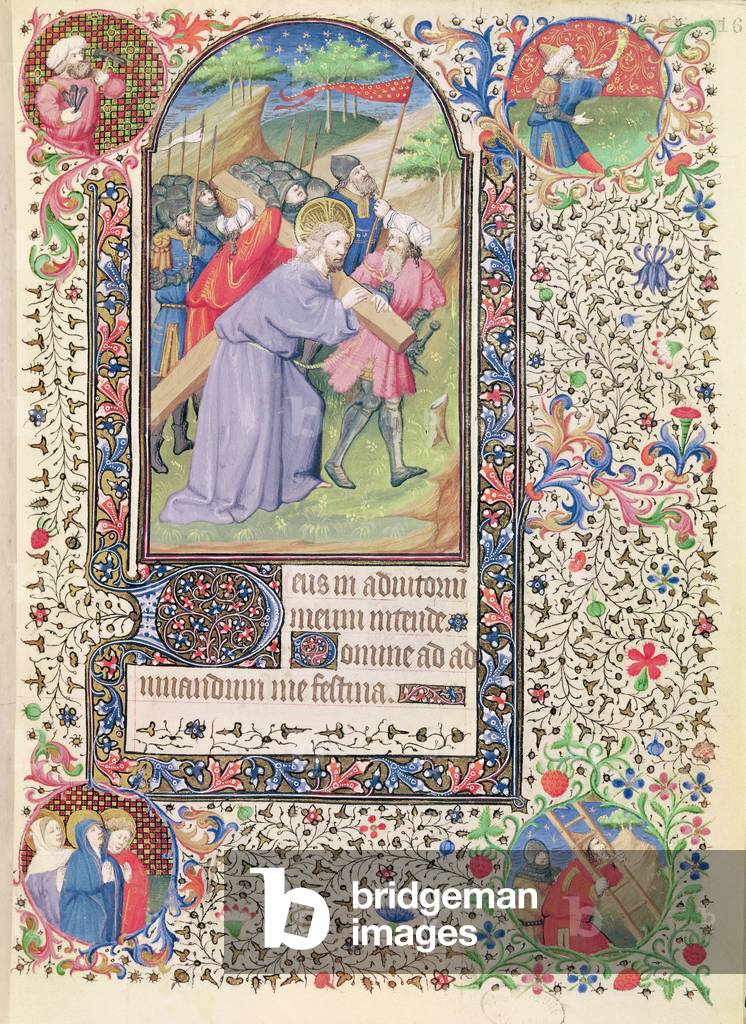 16
Deus in adiutoriu
meum intende
Domine ad ad
iuuandum me festina.
b bridgeman
images